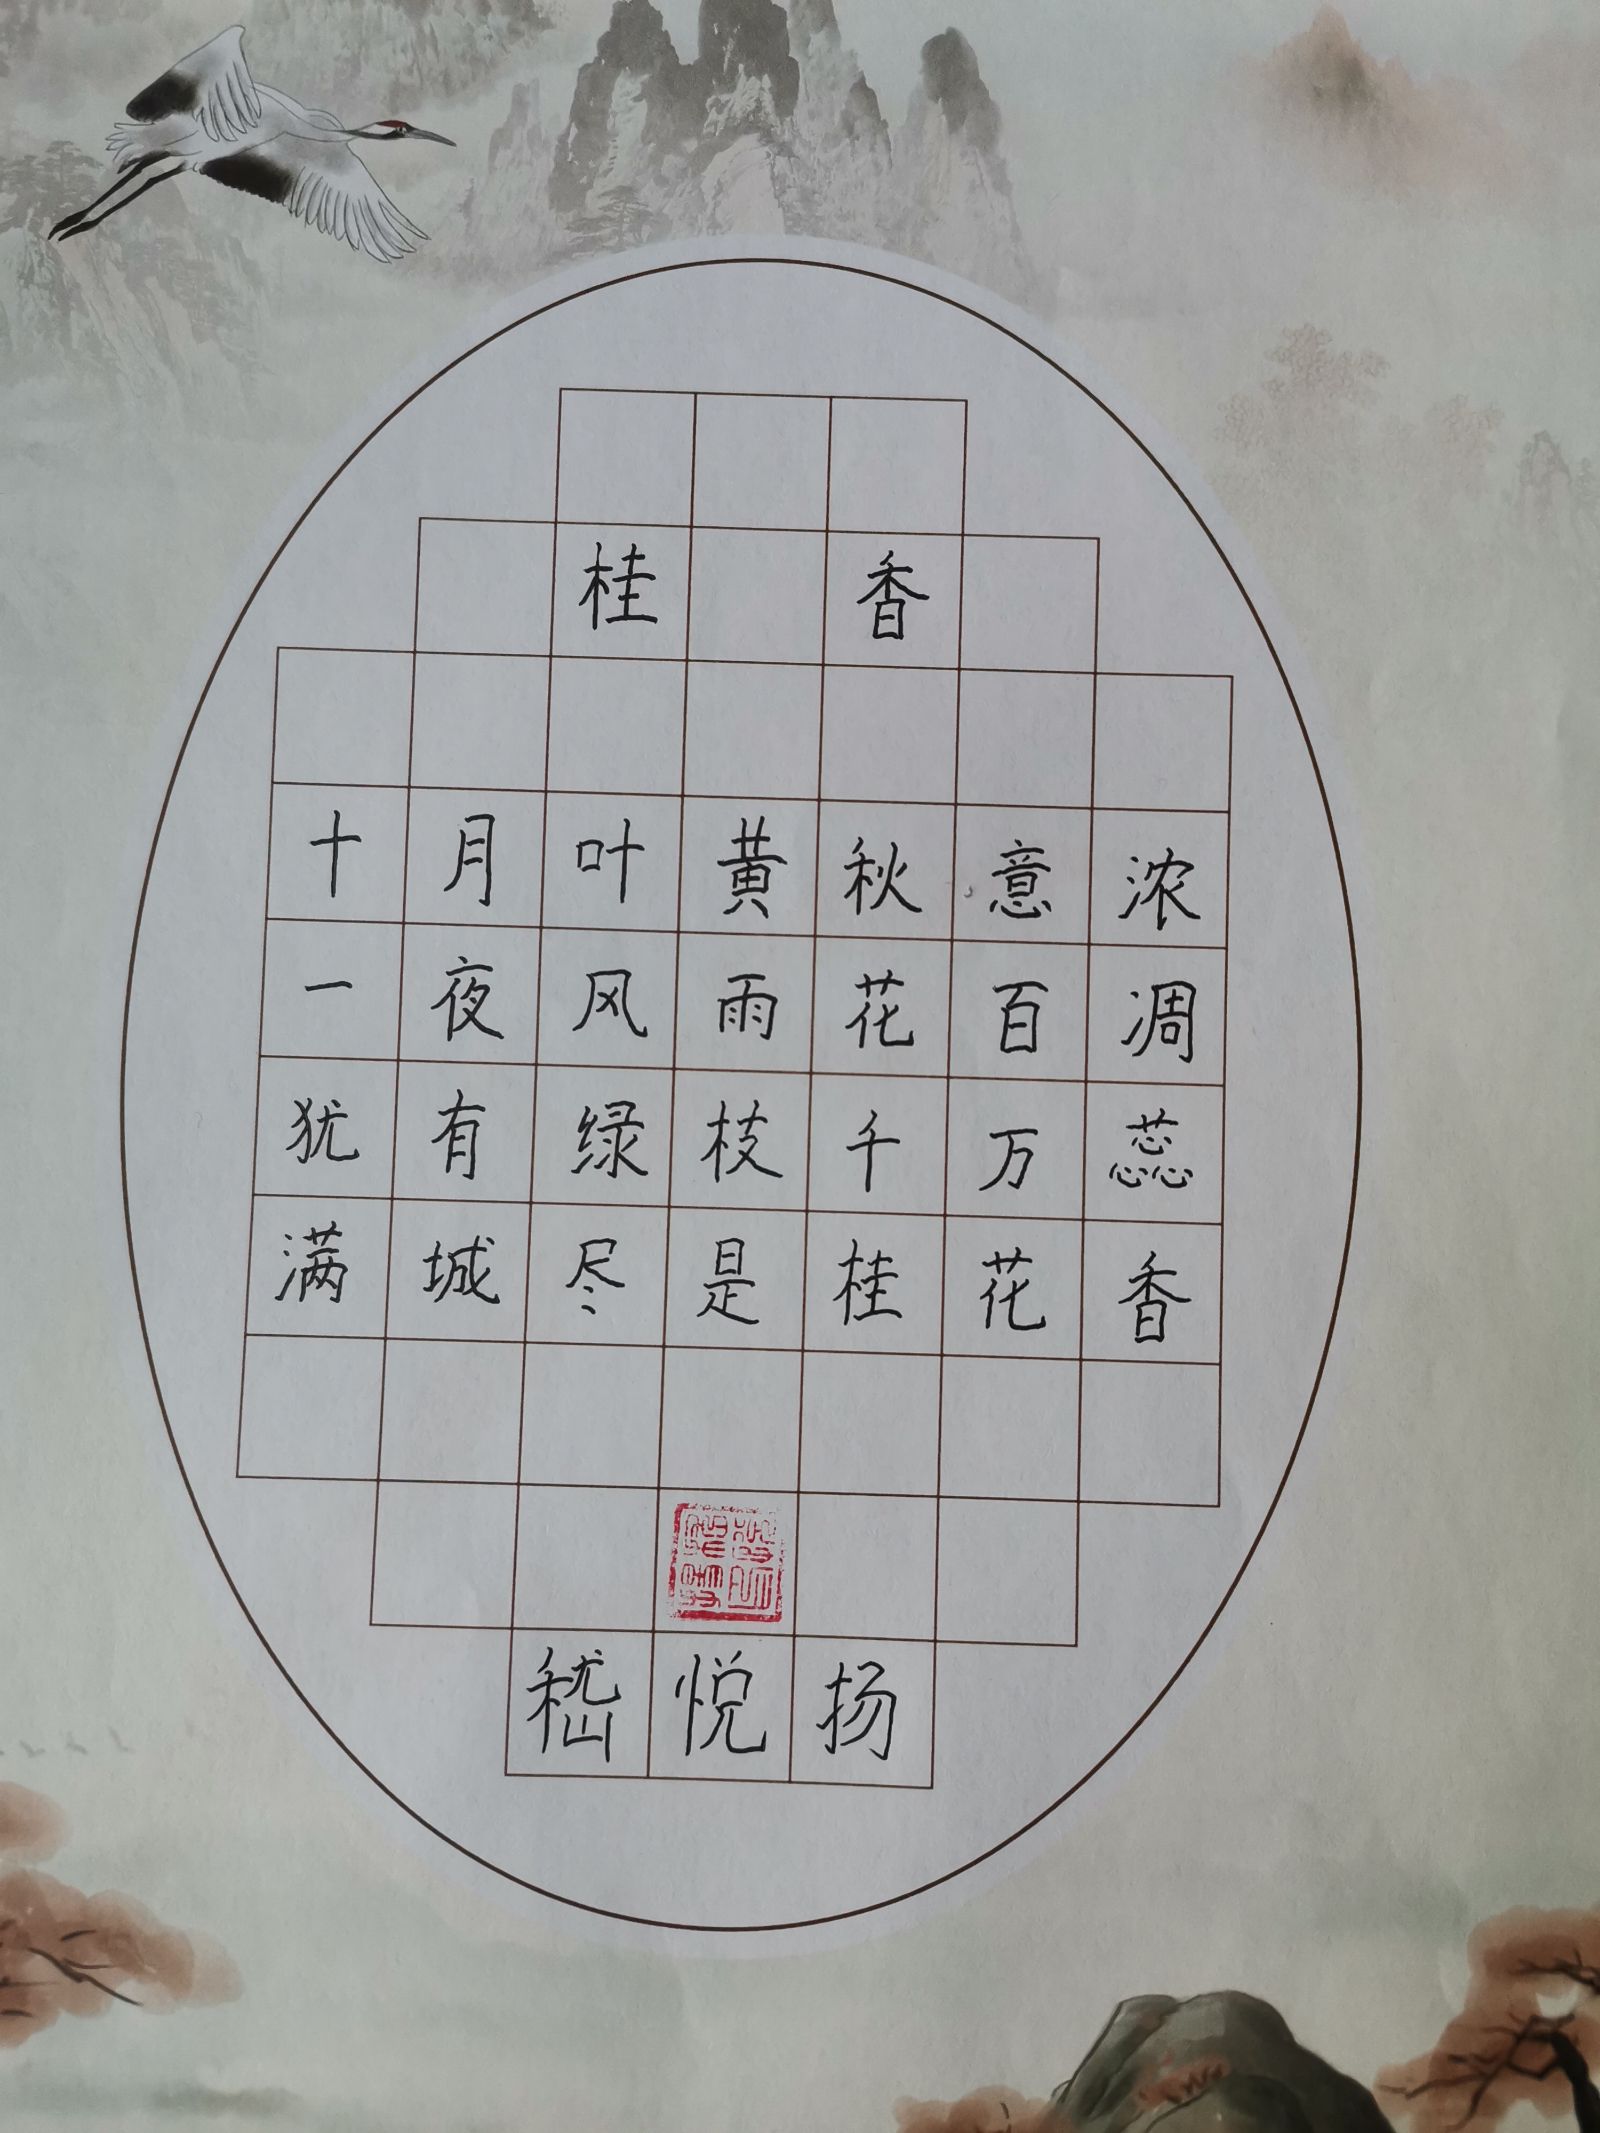 桂 香
十月叶黄秋意浓
一夜风雨花百凋
犹有绿枝千万蕊
满城尽是桂花香
嵇悦扬